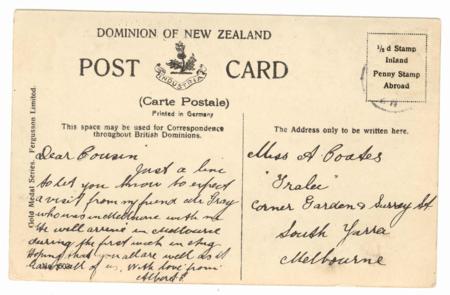 DOMINION OF NEW ZEALAND
POST CARD
INDUSTRIA
(Carte Postale)
Printed in Germany
½d Stamp
Inland
Penny Stamp
Abroad
This space may be used for Correspondence
throughout British Dominions.
The Address only to be written here.
Gold Medal Series. Fergusson Limited.
Dear Cousin
Just a line
to let you know to expect
a visit from my friend Mr Gray
who was in Melbourne with me
He will arrive in Melbourne
during the first week in Aug
Hoping that you all are well as it
leaves all of us. With love from
Albert
Miss A Coates
"Tralee"
Corner Garden & Surrey St
South Yarra
Melbourne